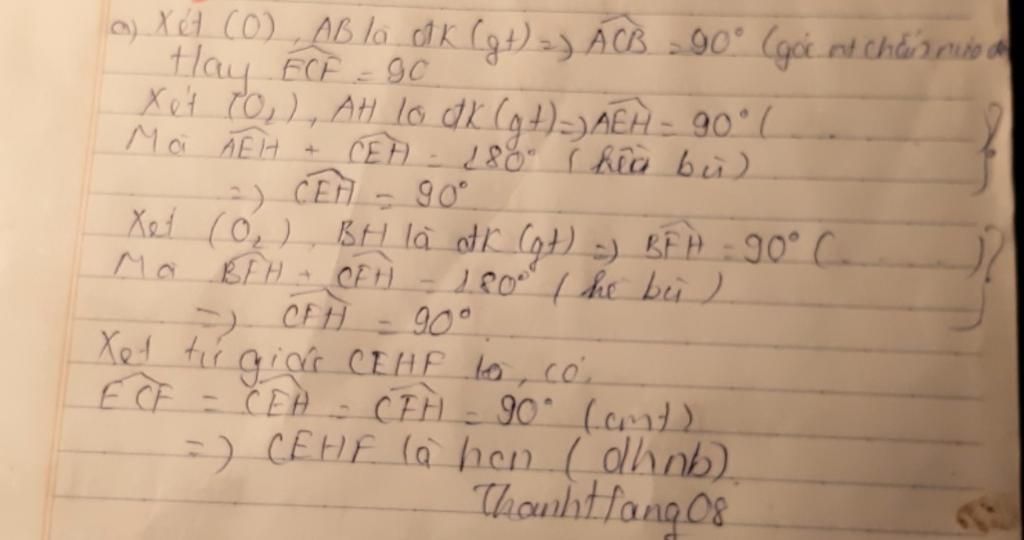 a) Xét (O), AB là đk (gt) => ACB = 90° (góc nt chắn nửa
Hay ECF = 90
Xét (O₂), AH là đk (gt) => AEH = 90° ( ........ }?
Mà AEH + CEH = 180° (kề bù)
=> CEH = 90°
Xét (O₂), BH là đk (gt) => BFH = 90° ( ........ )}?
Mà BFH + CFH = 180° (kề bù)
=> CFH = 90°
Xét tứ giác CEHF có,
ECF = CEH = CFH = 90° (cmt)
=> CEHF là hcn (dhnb)
Thanhtfang08